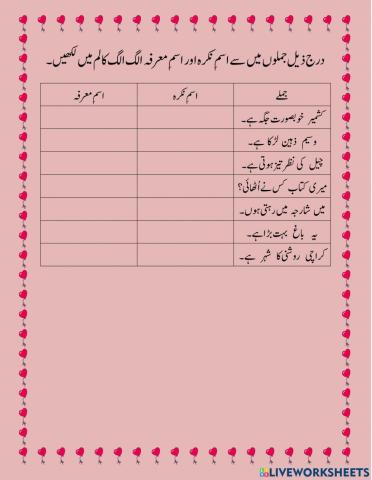 درج ذیل جملوں میں سے اسم نکرہ اور اسم معرفہ الگ الگ کالم میں لکھیں۔
جملے اسم نکرہ اسم معرفہ
کشمیر خوبصورت جگہ ہے۔
وسیم ذہین لڑکا ہے۔
چیل کی نظر تیز ہوتی ہے۔
میری کتاب کس نے اُٹھائی؟
میں شارجہ میں رہتی ہوں۔
یہ باغ بہت بڑا ہے۔
کراچی روشنی کا شہر ہے۔
LIVEWORKSHEETS